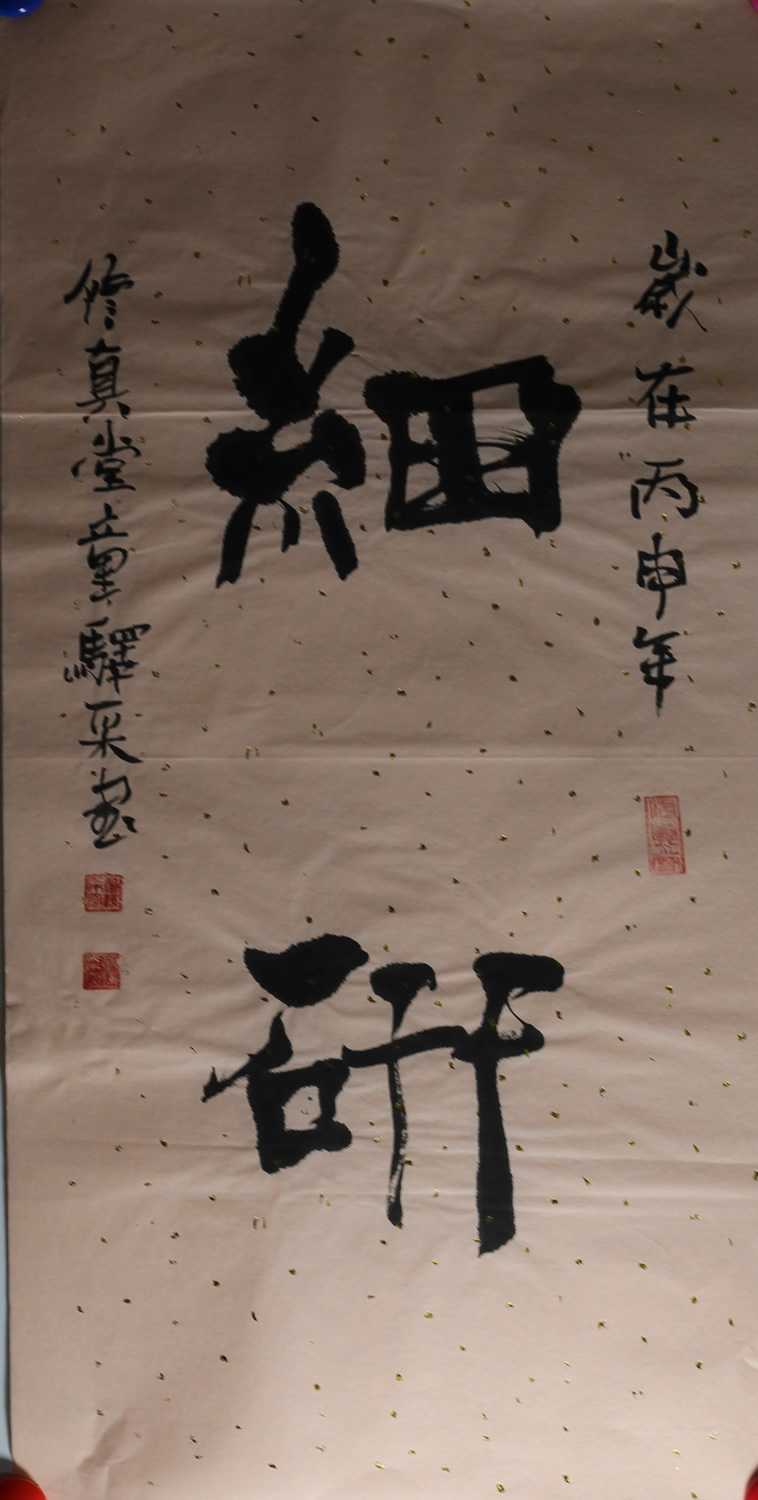 歲在丙申年
細
研
修真堂童驛采書